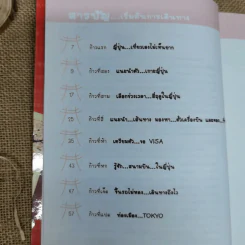 สารบัญ...เริ่มต้นการเดินทาง
7 ก้าวแรก ญี่ปุ่น...เที่ยวเองไม่เห็นยาก
9 ก้าวที่สอง แนะนำตัว...เกาะญี่ปุ่น
11 ก้าวที่สาม เลือกช่วงเวลา...ที่ฤดูในญี่ปุ่น
15 ก้าวที่สี่ แนะนำ...เส้นทาง จองตั๋ว...ตั๋วเครื่องบิน
ก้าวที่ห้า เตรียมตัว...ขอ VISA
43 ก้าวที่หก รู้จัก...สนามบิน...ในญี่ปุ่น
ก้าวที่เจ็ด ขึ้นรถไฟ
57 ก้าวที่แปด ท่องเมือง...TOKYO